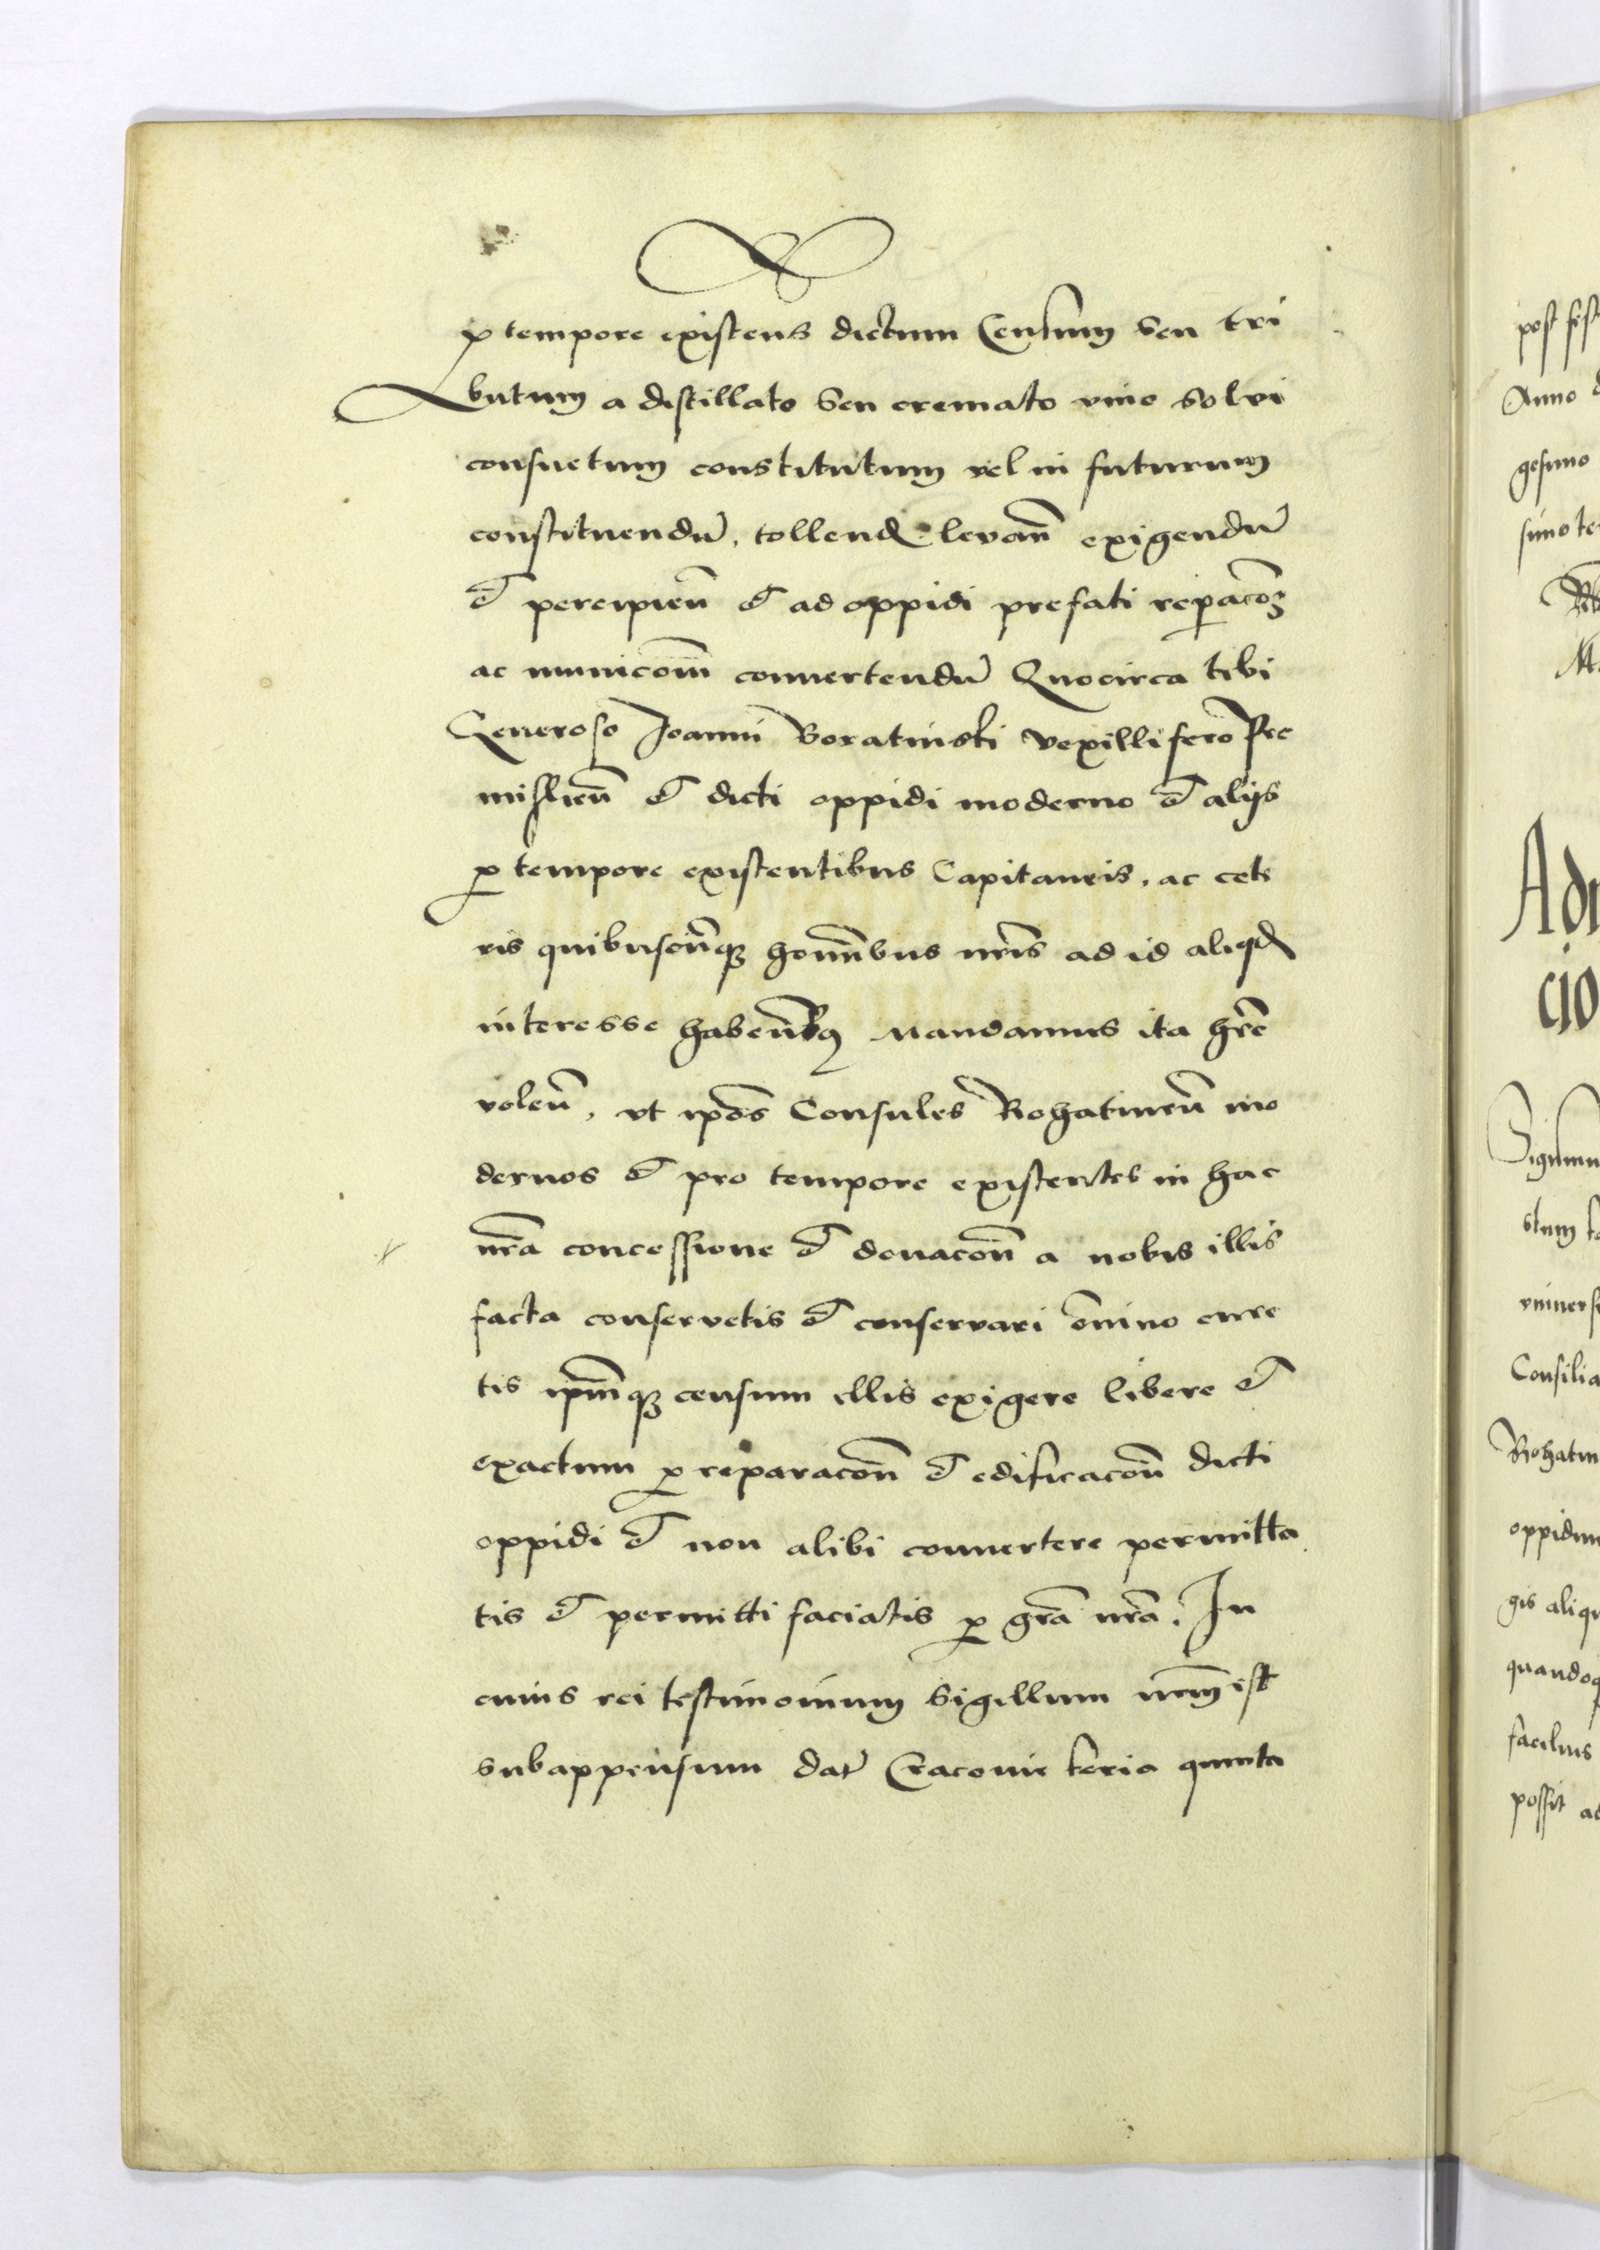 ꝓ tempore existens dictum Censum seu tri
butum a distillato seu cremato vino solvi
consuetum constitutum vel in futurum
constituendū, tollend levañ exigendū
et percipieñ et ad oppidi prefati repacoꝫ
ac municoñ convertendū Quocirca tibi
Generoso Joanni Boratinski Vexillifero Pre
mislieñ et dicti oppidi moderno et alijs
ꝓ tempore existentibus Capitaneis, ac cete
ris quibuscūqꝫ hominibus nris ad id aliqd
interesse habeñtibꝰ Mandamus ita hrē
voleñ, vt ipos Consules Rohatineñ mo
dernos et pro tempore existentes in hac
nrā concessione et donacoñ a nobis illis
facta conservetis et conservari oīno cure
tis ipmqꝫ censum illis exigere libere et
exactum ꝓ reparacoñ et edificacoñ dicti
oppidi et non alibi convertere permitta
tis et permitti faciatis ꝓ grā nrā. In
cuius rei testimonium Sigillum nrm est
subappensum dat Cracovie feria quinta
post fest
Anno
gesimo
simo te
Adm
cio
Sigismu
universi
Consilia
Rohatin
oppidum
gis aliqu
quandoq
facilius
possit ad